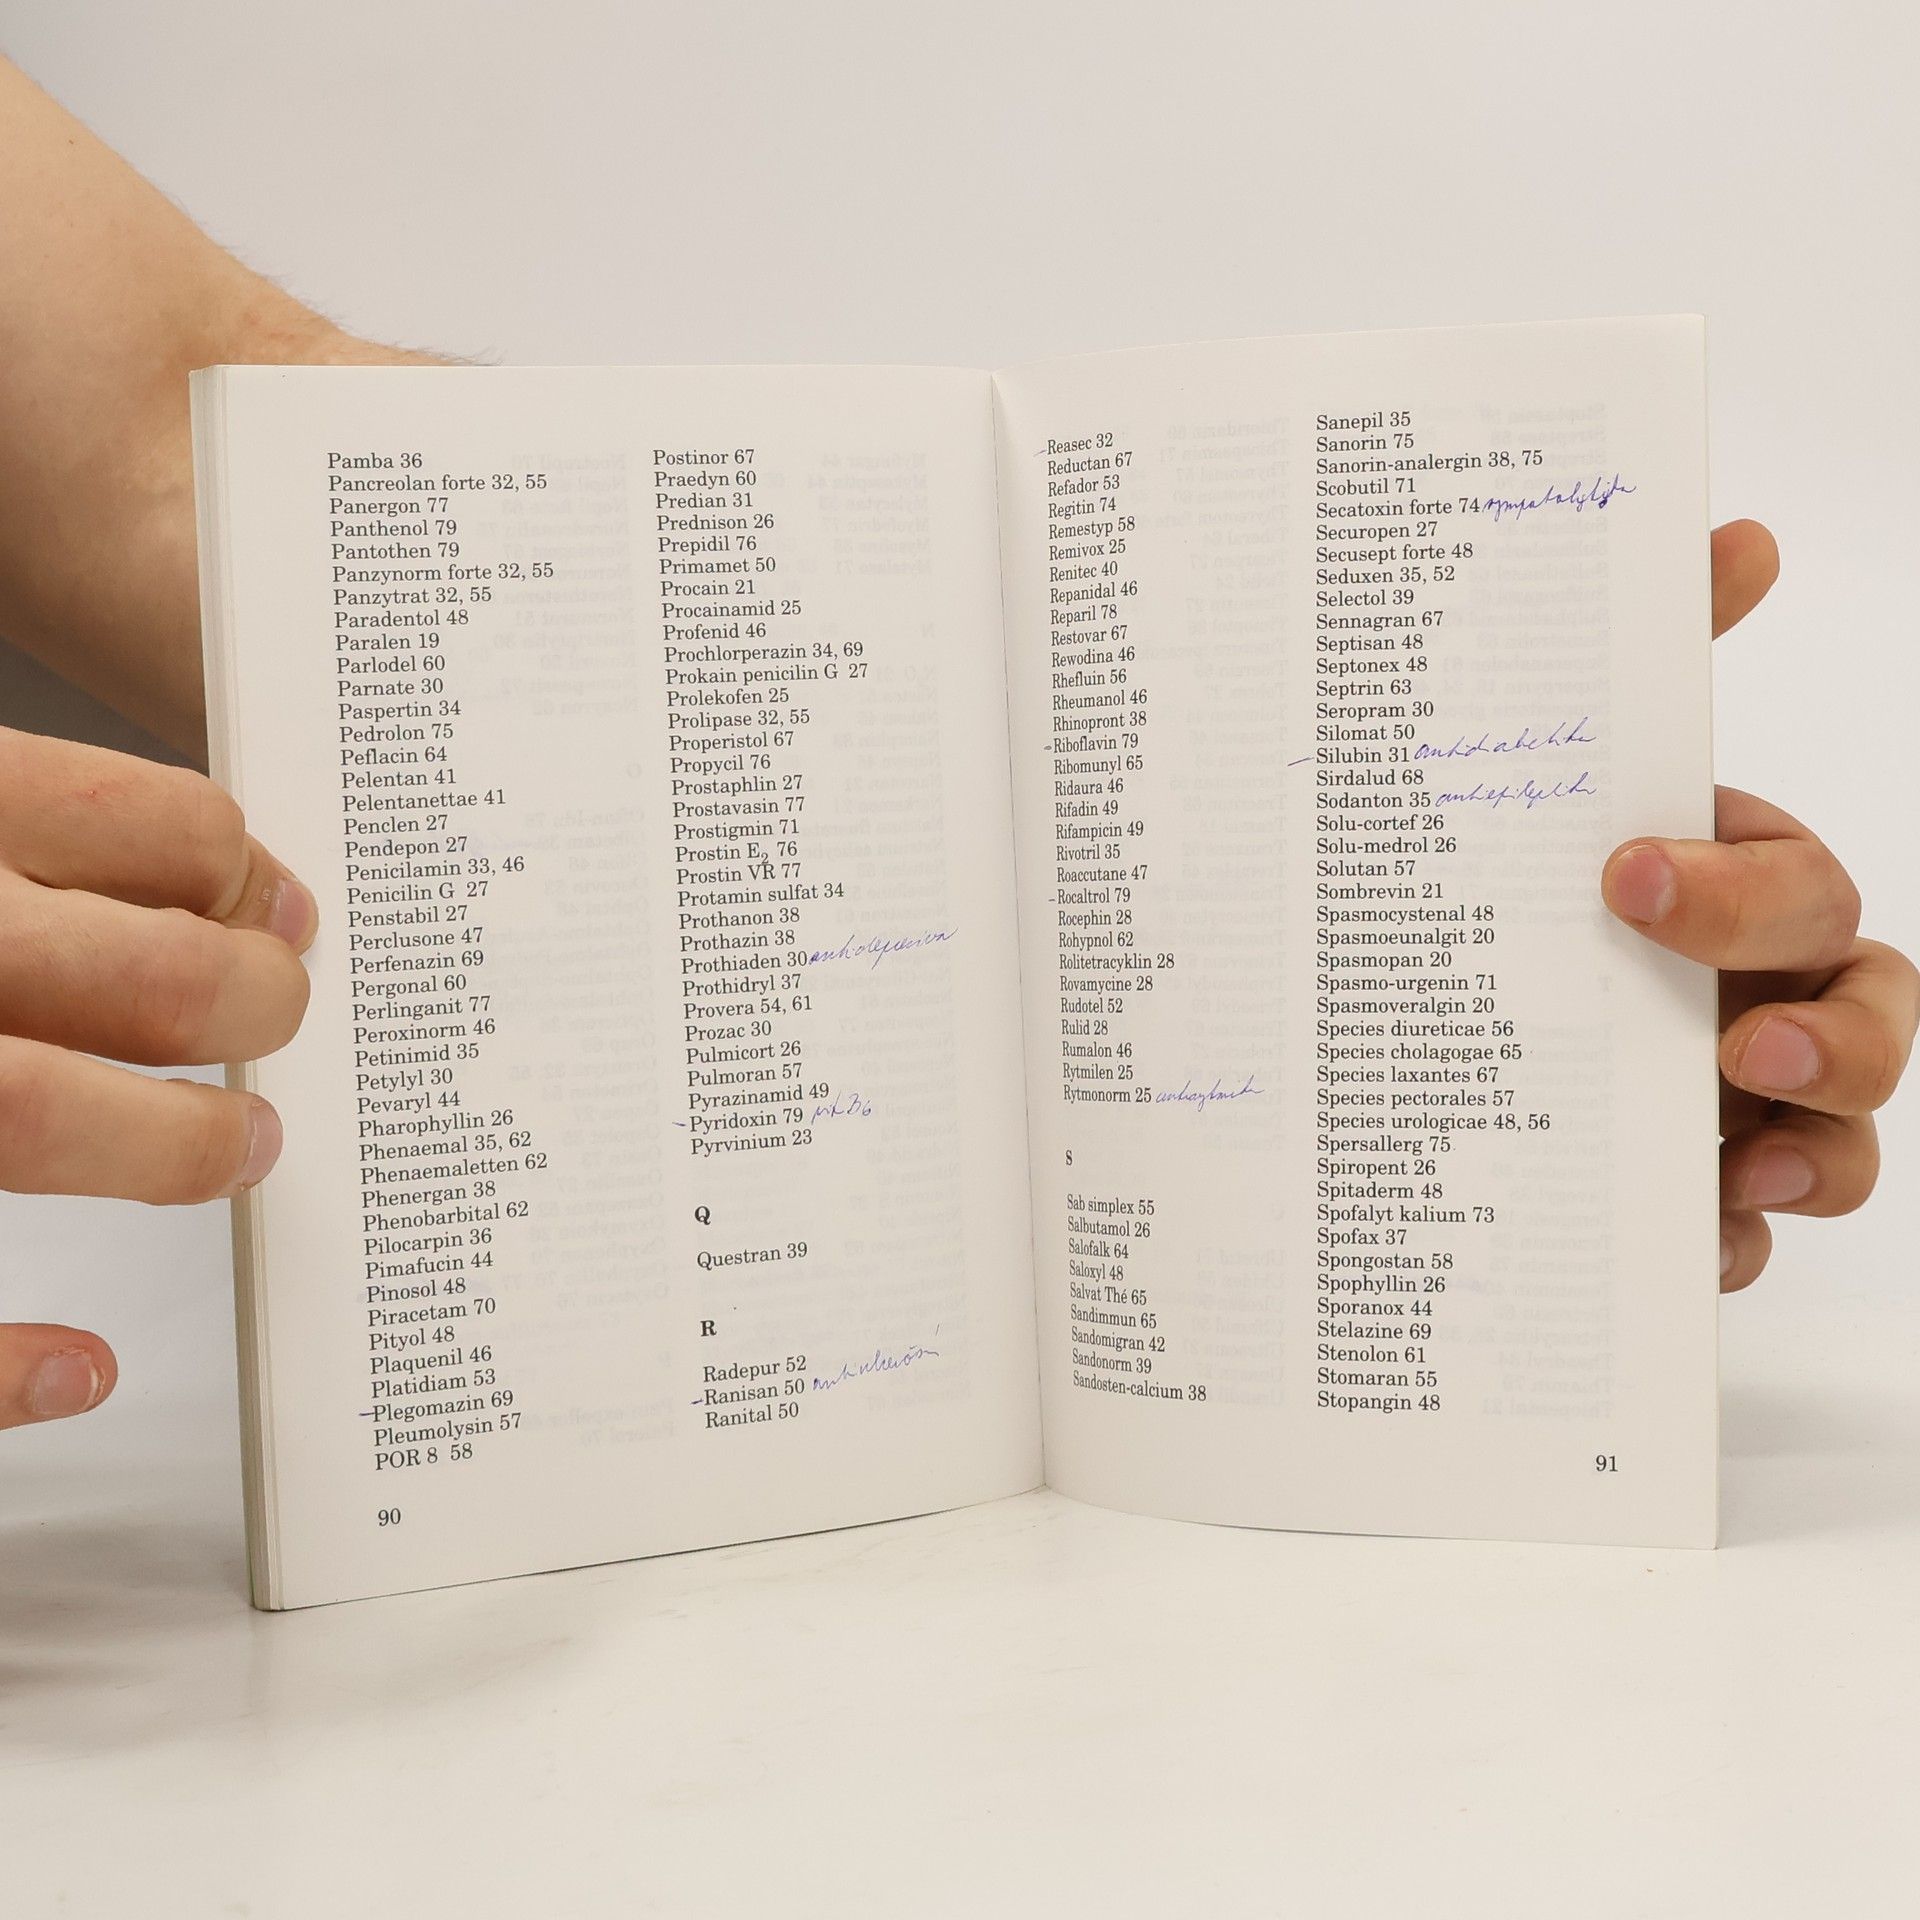 Pamba 36
Pancreolan forte 32, 55
Panergon 77
Panthenol 79
Pantothen 79
Panzynorm forte 32, 55
Panzytrat 32, 55
Paradentol 48
Paralen 19
Parlodel 60
Parnate 30
Paspertin 34
Pedrolon 75
Peflacin 64
Pelentan 41
Pelentanettae 41
Penclen 27
Pendepon 27
Penicilamin 33, 46
Penicilin G 27
Penstabil 27
Perclusone 47
Perfenazin 69
Pergonal 60
Perlinganit 77
Peroxinorm 46
Petinimid 35
Petylyl 30
Pevaryl 44
Pharophyllin 26
Phenaemal 35, 62
Phenaemaletten 62
Phenergan 38
Phenobarbital 62
Pilocarpin 36
Pimafucin 44
Pinosol 48
Piracetam 70
Pityol 48
Plaquenil 46
Platidiam 53
Plegomazin 69
Pleumolysin 57
POR 8 58
90
Postinor 67
Praedyn 60
Predian 31
Prednison 26
Prepidil 76
Primamet 50
Procain 21
Procainamid 25
Profenid 46
Prochlorperazin 34, 69
Prokain penicilin G 27
Prolekofen 25
Prolipase 32, 55
Properistol 67
Propycil 76
Prostaphlin 27
Prostavasin 77
Prostigmin 71
Prostin E₂ 76
Prostin VR 77
Protamin sulfat 34
Prothanon 38
Prothazin 38
Prothiaden 30 antidepresiva
Prothidryl 37
Provera 54, 61
Prozac 30
Pulmicort 26
Pulmoran 57
Pyrazinamid 49
Pyridoxin 79 vit B6
Pyrvinium 23
Q
Questran 39
R
Radepur 52
Ranisan 50
Ranital 50
Reasec 32
Reductan 67
Refador 53
Regitin 74
Remestyp 58
Remivox 25
Renitec 40
Repanidal 46
Reparil 78
Restovar 67
Rewodina 46
Rhefluin 56
Rheumanol 46
Rhinopront 38
Riboflavin 79
Ribomunyl 65
Ridaura 46
Rifadin 49
Rifampicin 49
Rivotril 35
Roaccutane 47
Rocaltrol 79
Rocephin 28
Rohypnol 62
Rolitetracyklin 28
Rovamycine 28
Rudotel 52
Rulid 28
Rumalon 46
Rytmilen 25
Rytmonorm 25
S
Sab simplex 55
Salbutamol 26
Salofalk 64
Saloxyl 48
Salvat Thé 65
Sandimmun 65
Sandomigran 42
Sandonorm 39
Sandosten-calcium 38
Sanepil 35
Sanorin 75
Sanorin-analergin 38, 75
Scobutil 71
Secatoxin forte 74
Securopen 27
Secusept forte 48
Seduxen 35, 52
Selectol 39
Sennagran 67
Septisan 48
Septonex 48
Septrin 63
Seropram 30
Silomat 50
Silubin 31 antidiabetika
Sirdalud 68
Sodanton 35 antiepileptika
Solu-cortef 26
Solu-medrol 26
Solutan 57
Sombrevin 21
Spasmocystenal 48
Spasmoeunalgit 20
Spasmopan 20
Spasmo-urgenin 71
Spasmoveralgin 20
Species diureticae 56
Species cholagogae 65
Species laxantes 67
Species pectorales 57
Species urologicae 48, 56
Spersallerg 75
Spiropent 26
Spitaderm 48
Spofalyt kalium 73
Spofax 37
Spongostan 58
Spophyllin 26
Sporanox 44
Stelazine 69
Stenolon 61
Stomaran 55
Stopangin 48
91